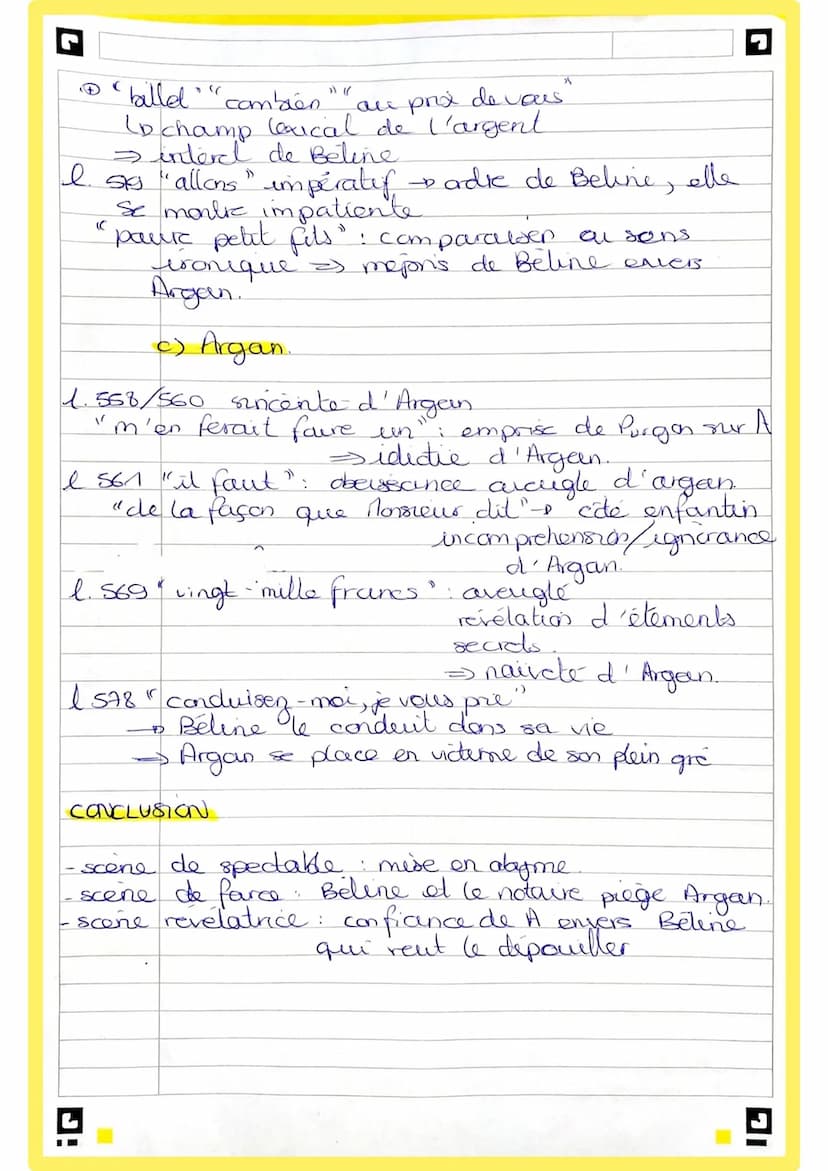 ⊕ "billet" "combien" "au prix de vous"
↳ champ lexical de l'argent
⇒ intérêt de Béline
l. "allons" impératif → ordre de Béline, elle
se montre impatiente
"pauvre petit fils" : comparaison au sens
ironique ⇒ mépris de Béline envers
Argan.
c) Argan.
l. 558/560 sincérité d'Argan
"m'en ferait faire un" : emprise de Purgon sur A
⇒ idiotie d'Argan.
l 561 "il faut" : obéissance aveugle d'argan
"de la façon que Monsieur dit" → côté enfantin
incompréhension/ignorance
d'Argan.
l. 569 "vingt-mille francs" : aveuglé
révélation d'éléments
secrets.
⇒ naïveté d'Argan.
l 578 "conduisez-moi, je vous prie"
→ Béline le conduit dans sa vie
⇒ Argan se place en victime de son plein gré
CONCLUSION
- scène de spectable : mise en abyme.
- scène de farce : Béline et le notaire piège Argan.
- scène révélatrice : confiance de A envers Béline
qui veut le dépouiller